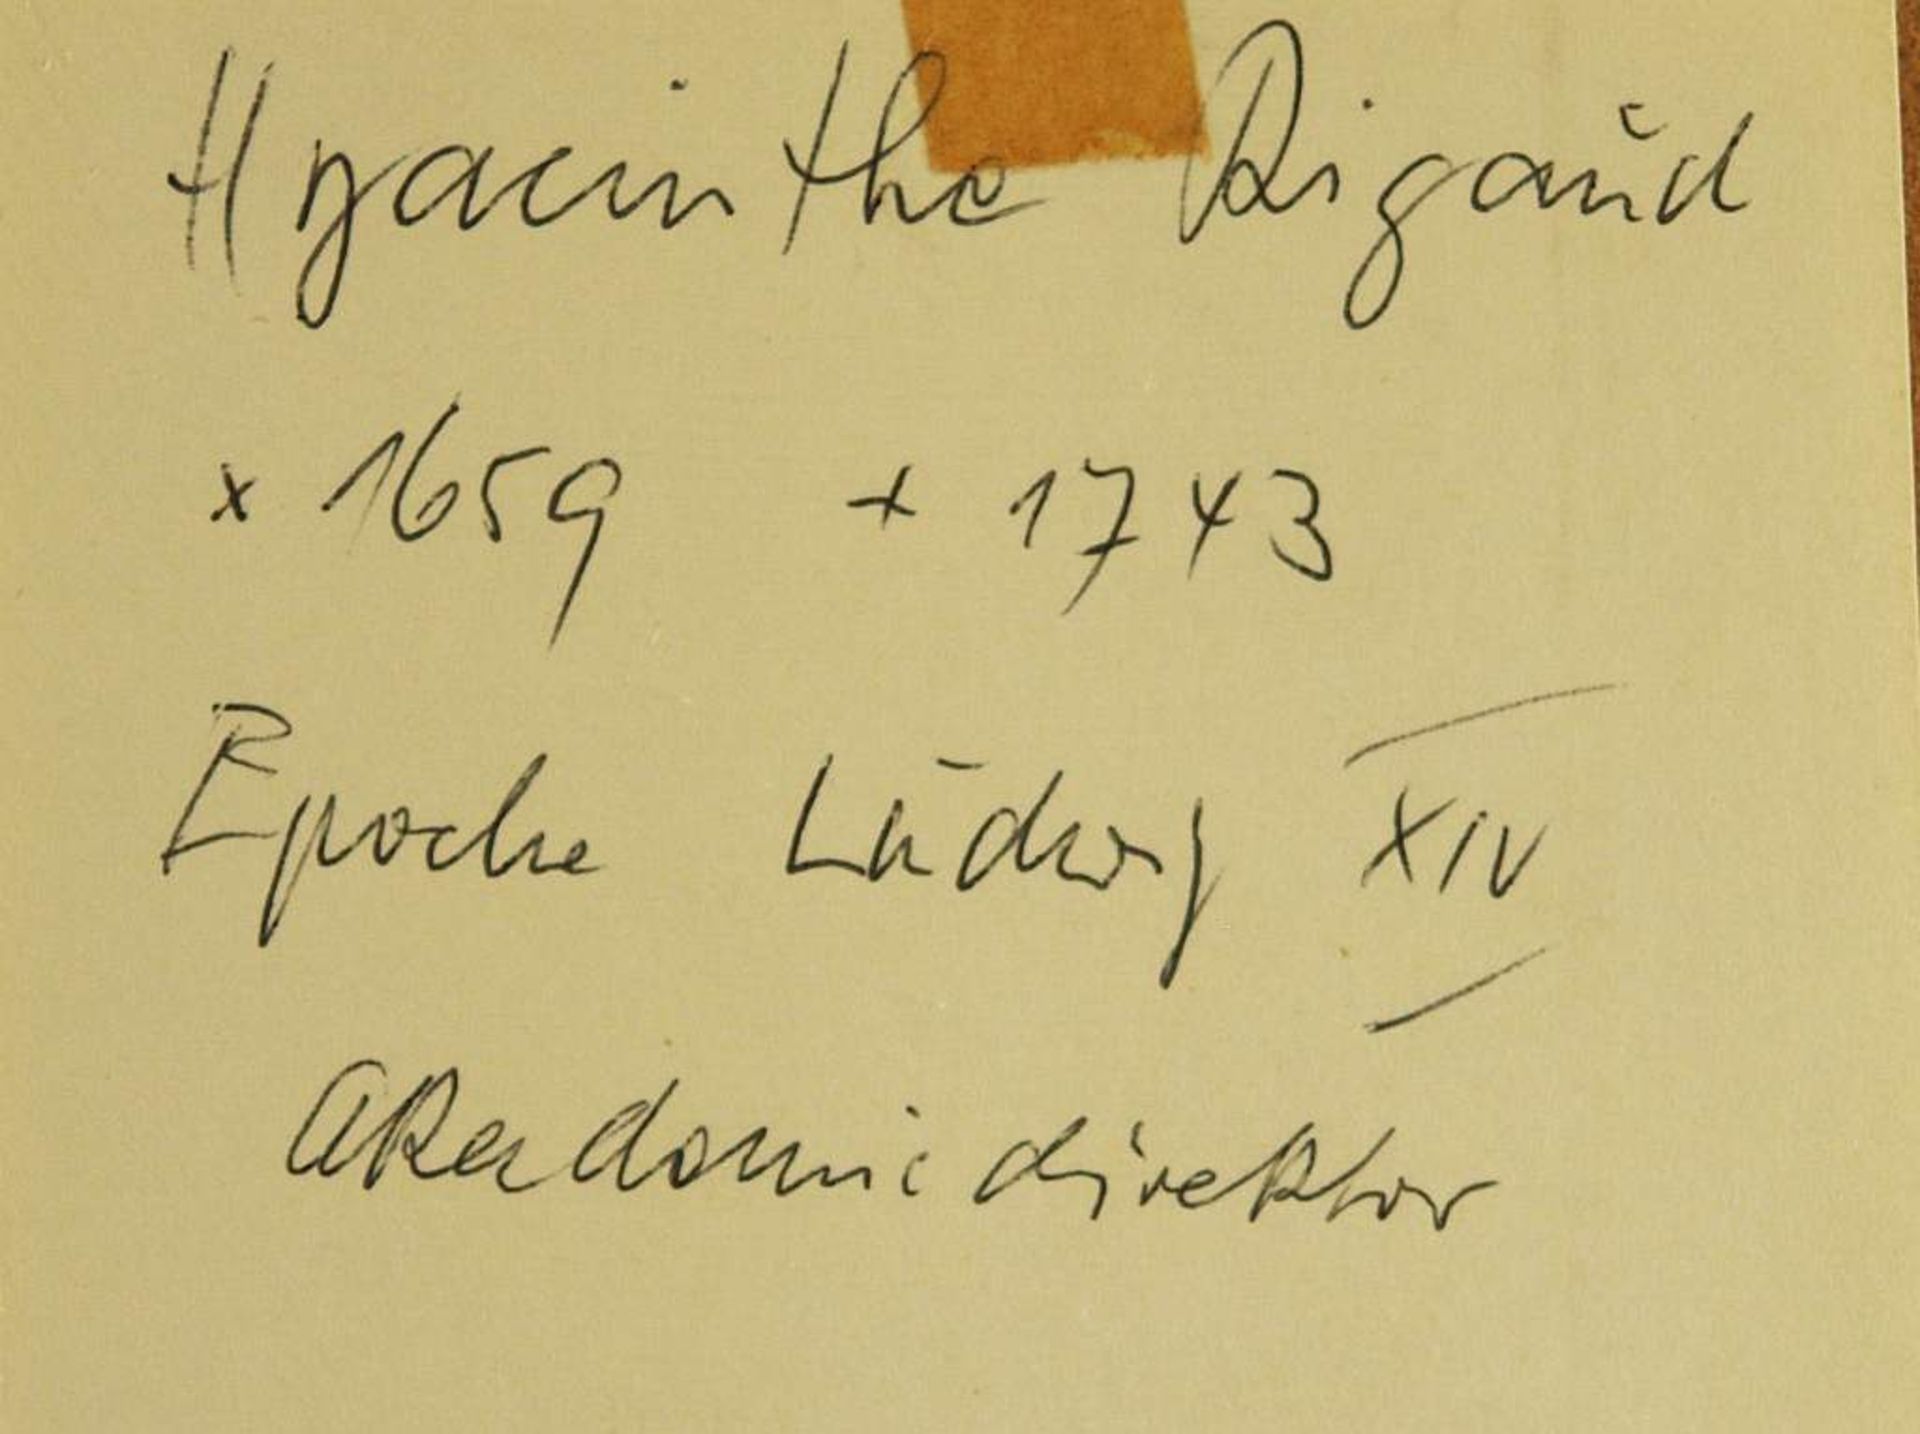 Hyacinthe Rigaud
x 1659 + 1743
Epoche Ludwig XIV
Akademiedirektor